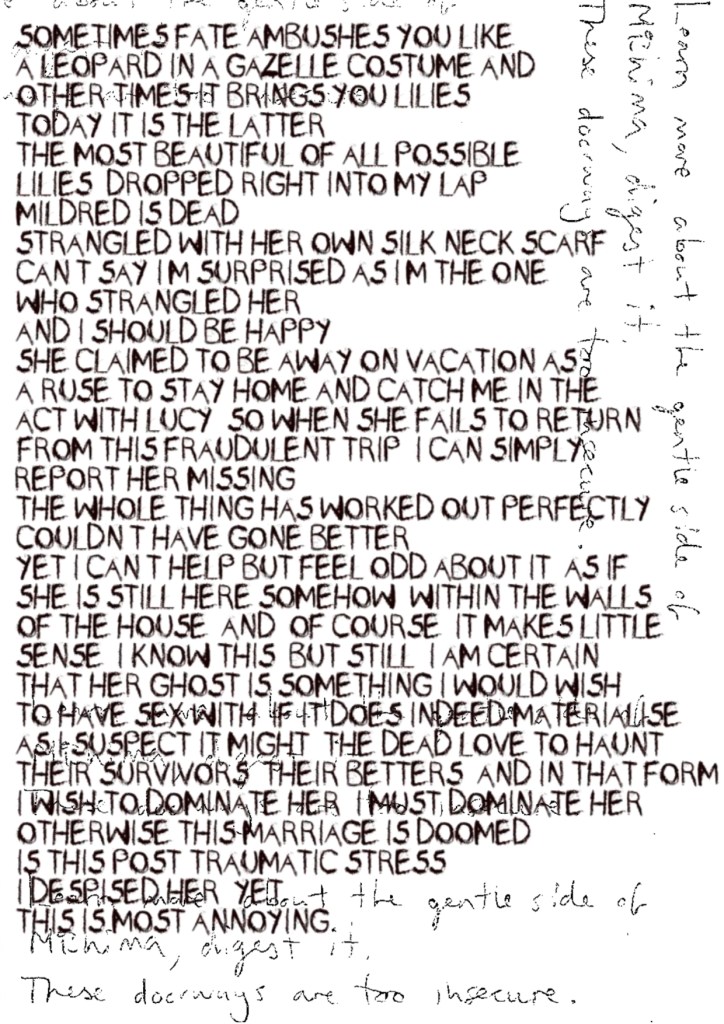 about the gentle side of
SOMETIMES FATE AMBUSHES YOU LIKE
A LEOPARD IN A GAZELLE COSTUME AND
OTHER TIMES IT BRINGS YOU LILIES
TODAY IT IS THE LATTER
THE MOST BEAUTIFUL OF ALL POSSIBLE
LILIES DROPPED RIGHT INTO MY LAP
MILDRED IS DEAD
STRANGLED WITH HER OWN SILK NECK SCARF
CAN T SAY I M SURPRISED AS I M THE ONE
WHO STRANGLED HER
AND I SHOULD BE HAPPY
SHE CLAIMED TO BE AWAY ON VACATION AS
A RUSE TO STAY HOME AND CATCH ME IN THE
ACT WITH LUCY SO WHEN SHE FAILS TO RETURN
FROM THIS FRAUDULENT TRIP I CAN SIMPLY
REPORT HER MISSING
THE WHOLE THING HAS WORKED OUT PERFECTLY
COULDN T HAVE GONE BETTER
YET I CAN T HELP BUT FEEL ODD ABOUT IT AS IF
SHE IS STILL HERE SOMEHOW WITHIN THE WALLS
OF THE HOUSE AND OF COURSE IT MAKES LITTLE
SENSE I KNOW THIS BUT STILL I AM CERTAIN
THAT HER GHOST IS SOMETHING I WOULD WISH
TO HAVE SEX WITH IF IT DOES INDEED MATERIALISE
AS I SUSPECT IT MIGHT THE DEAD LOVE TO HAUNT
THEIR SURVIVORS THEIR BETTERS AND IN THAT FORM
I WISH TO DOMINATE HER I MUST DOMINATE HER
OTHERWISE THIS MARRIAGE IS DOOMED
IS THIS POST TRAUMATIC STRESS
I DESPISED HER YET
THIS IS MOST ANNOYING.
Learn more about the gentle side of
digest it.
These doorways are too insecure.
Learn more about the gentle side of
digest it.
These doorways are too insecure.